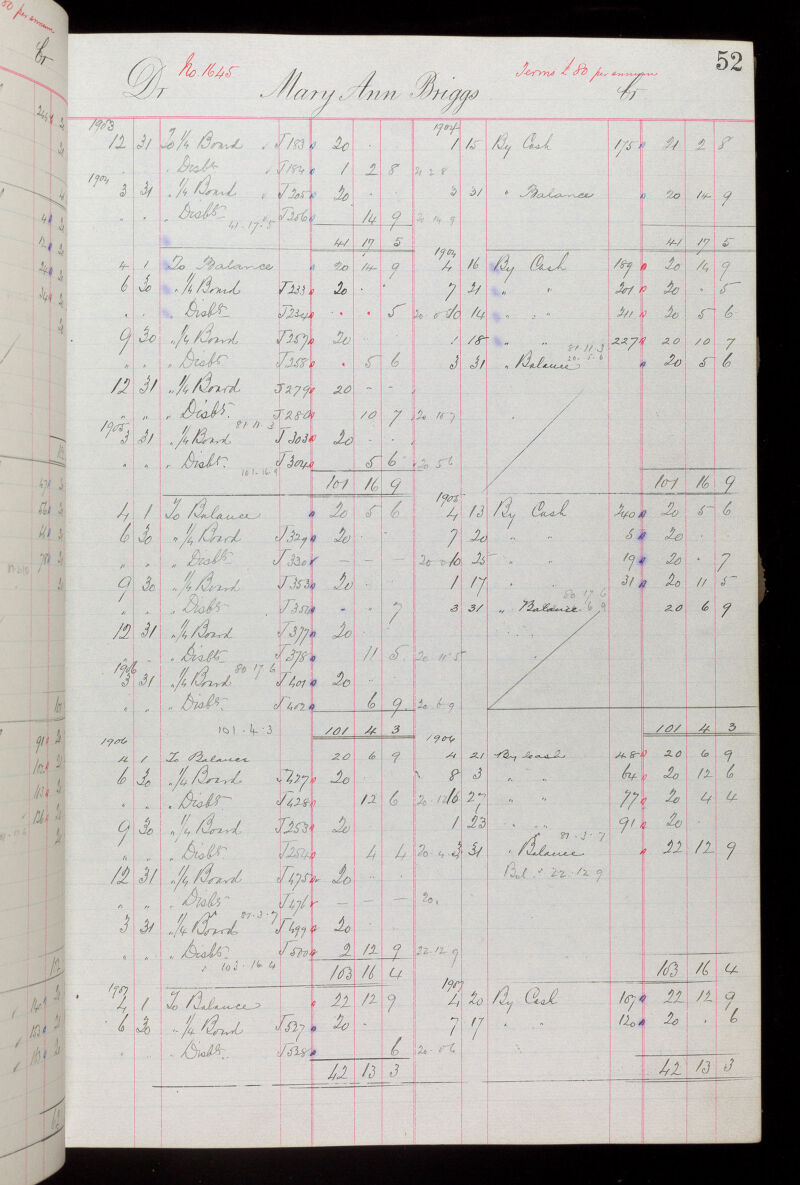 52
Dr No. 1645 Mary Ann Briggs Terms £80 per annum Cr
1903 1904
12 31 To 1/4 Board J183 20 . . 1 15 By Cash 175 21 2 8
" " " Disbts J184 1 2 8 21 2 8
1904
3 31 " 1/4 Board J205 20 . . 3 31 " Balance 20 14 9
" " " Disbts J206 14 9 20 14 9
41-17-5
41 17 5 41 17 5
1904
4 1 To Balance 20 14 9 4 16 By Cash 189 20 14 9
6 30 " 1/4 Board J233 20 . . 7 21 " " 201 20 . 5
" " " Disbts J234 . . 5 20-0-5 10 14 " " 211 20 5 6
9 30 " 1/4 Board J257 20 1 18 " " 227 20 10 7
81-11-3
" " " Disbts J258 . 5 6 3 31 " Balance 20 5 6
20-5-6
12 31 " 1/4 Board J279 20 - -
" " " Disbts. J280 10 7 20 10 7
1905 81-11-3
3 31 " 1/4 Board J303 20 . .
" " " Disbts. J304 5 6 20 5 6
101-16-9
101 16 9 101 16 9
1905
4 1 To Balance 20 5 6 4 13 By Cash 240 20 5 6
6 30 " 1/4 Board J329 20 . . 7 20 " " 5 20 . .
" " " Disbts J330 - - - 20-0-0 10 25 " " 19 20 . 7
9 30 " 1/4 Board J353 20 . . 1 17 " " 31 20 11 5
80 17 6
" " " Disbts J354 . . 7 3 31 " Balance 20 6 9
12 31 " 1/4 Board J377 20 . .
" " " Disbts J378 11 5 20-11-5
1906 80 17 6
3 31 " 1/4 Board J401 20 . .
" " " Disbts. J402 6 9 20-6-9
101-4-3 101 4 3 101 4 3
1906 1906
4 1 To Balance 20 6 9 4 21 By Cash 48 20 6 9
6 30 " 1/4 Board J427 20 . . 8 3 " " 64 20 12 6
" " " Disbts J428 12 6 20-12-6 10 27 " " 77 20 4 4
9 30 " 1/4 Board J253 20 1 23 " " 91 20 .
81-3-7
" " " Disbts J254 4 4 20-4-4 3 31 " Balance 22 12 9
12 31 " 1/4 Board J475 20 . . Bal. 22-12-9
" " " Disbts J476 - - - 20.
81-3-7
3 31 " 1/4 Board J499 20 . .
" " " Disbts. J500 2 12 9 22-12-9
103-16-4
103 16 4 103 16 4
1907 1907
4 1 To Balance 22 12 9 4 20 By Cash 107 22 12 9
6 30 " 1/4 Board J537 20 . 7 17 " " 120 20 . 6
" " " Disbts. J538 6 20-0-6
42 13 3 42 13 3